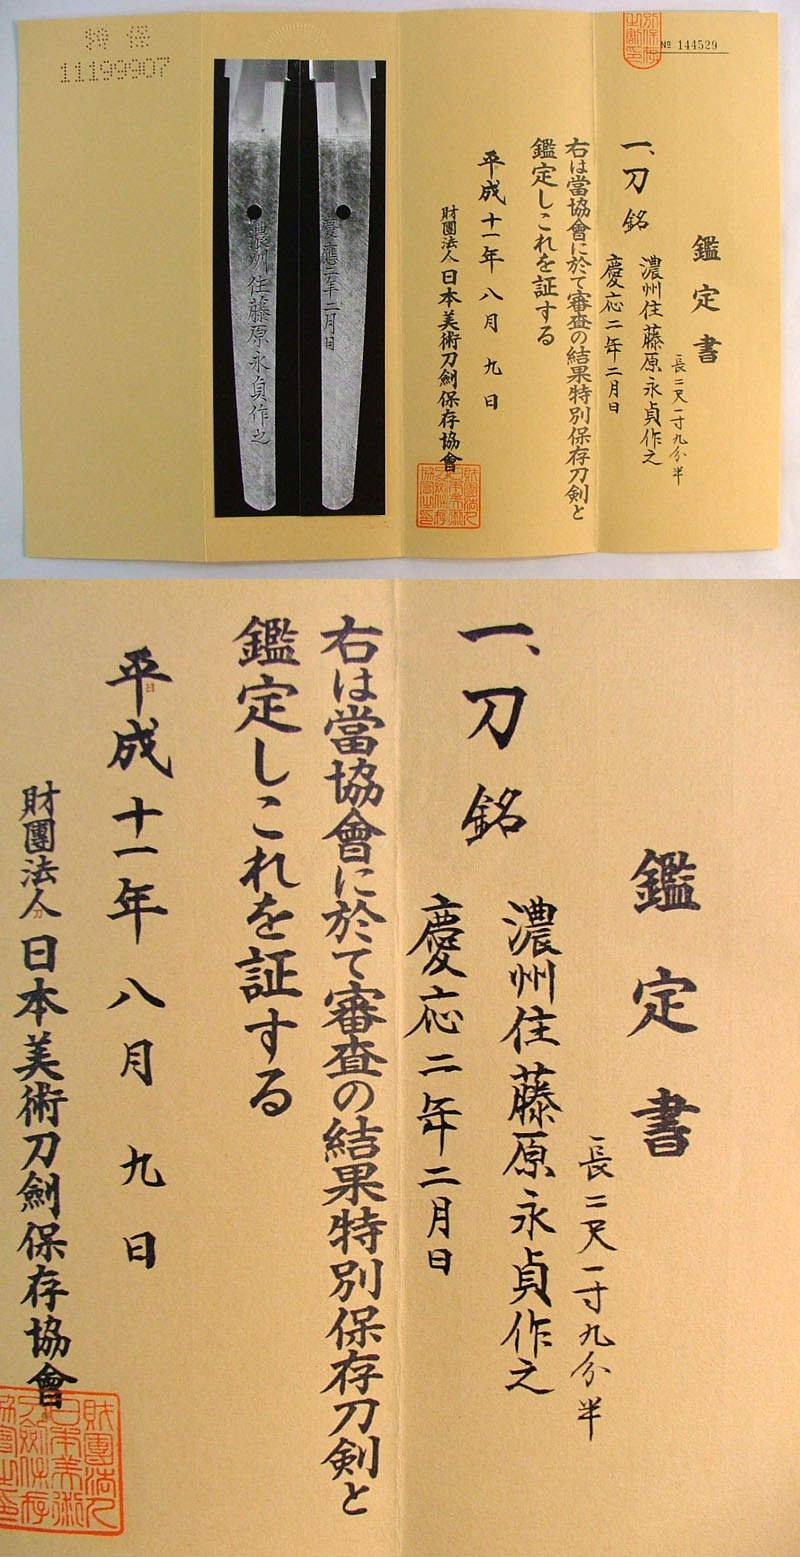 特保
11199907
慶應二年二月日
濃州住藤原永貞作之
№ 144529
鑑定書
一、刀 銘
長二尺一寸九分半
濃州住藤原永貞作之
慶応二年二月日
右は當協會に於て審査の結果特別保存刀剣と
鑑定しこれを証する
平成十一年八月九日
財團法人日本美術刀劍保存協會
鑑定書
長二尺一寸九分半
一、刀 銘
濃州住藤原永貞作之
慶応二年二月日
右は當協會に於て審査の結果特別保存刀剣と
鑑定しこれを証する
平成十一年八月九日
財團法人日本美術刀劍保存協會